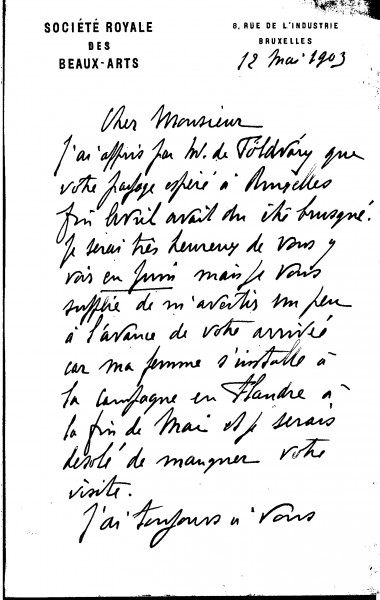 SOCIÉTÉ ROYALE
DES
BEAUX-ARTS
8, RUE DE L'INDUSTRIE
BRUXELLES
12 Mai 1903
Cher Monsieur
J'ai appris par M. de Földváry que
votre passage espéré à Bruxelles
fin Avril avait du été brusqué.
Je serai très heureux de vous y
voir en Juin mais je vous
supplie de m'avertir un peu
à l'avance de votre arrivée
car ma femme s'installe à
la campagne en Flandre à
la fin de Mai et je serais
désolé de manquer votre
visite.
J'ai toujours à vous